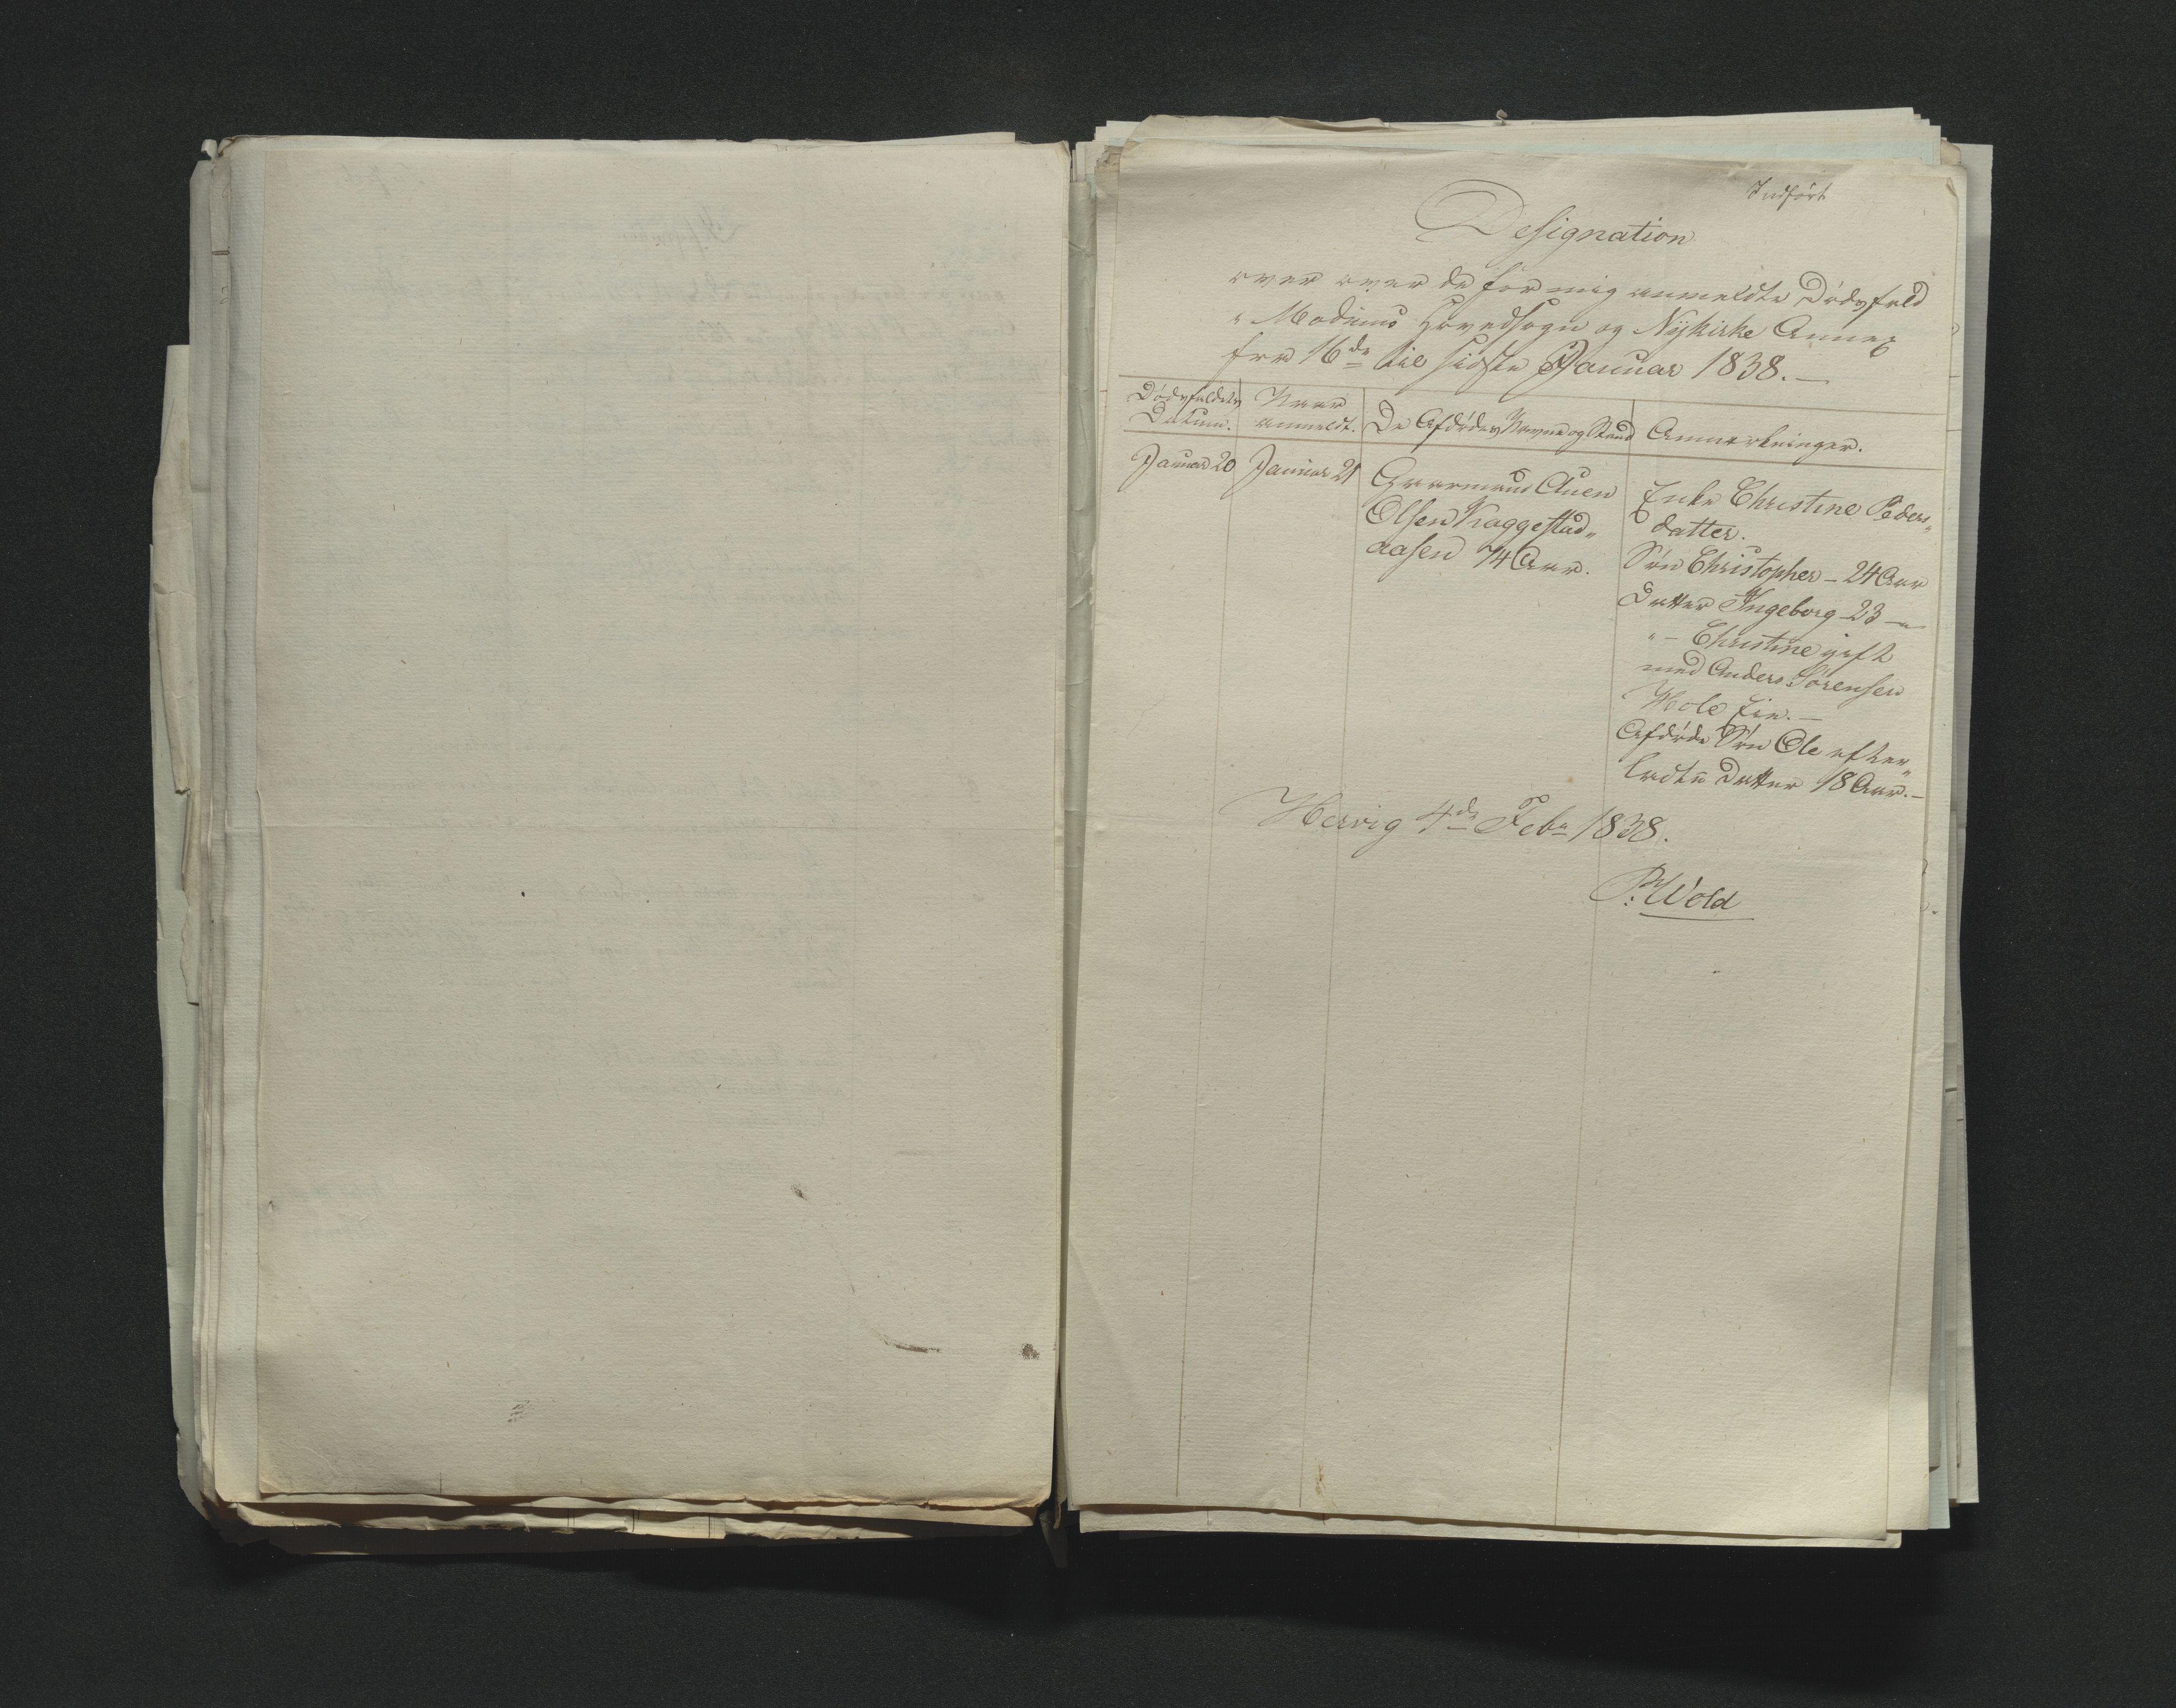 Indført
Designation
over over de for mig anmeldte Dødsfald
i Modums Hovedsogn og Nykirke Annex
fra 16de til sidste Januar 1838. —
Dødsfaldets Datum.
Naar anmeldt.
De Afdødes Navne og Stand
Anmærkninger.
Januar 20
Januar 21
Gaarmand Auen
Olsen Kaggestad„
aasen 74 Aar.
Enke Christine Peders„
datter.
Søn Christopher – 24 Aar
Datter Ingeborg – 23 –„
„ – Christine gift
med Anders Sørensen
Hole Eie. –
Afdøde Søn Ole efter„
ladte Datter 18 Aar. –
Hervig 4de Febr 1838.
P: Wold